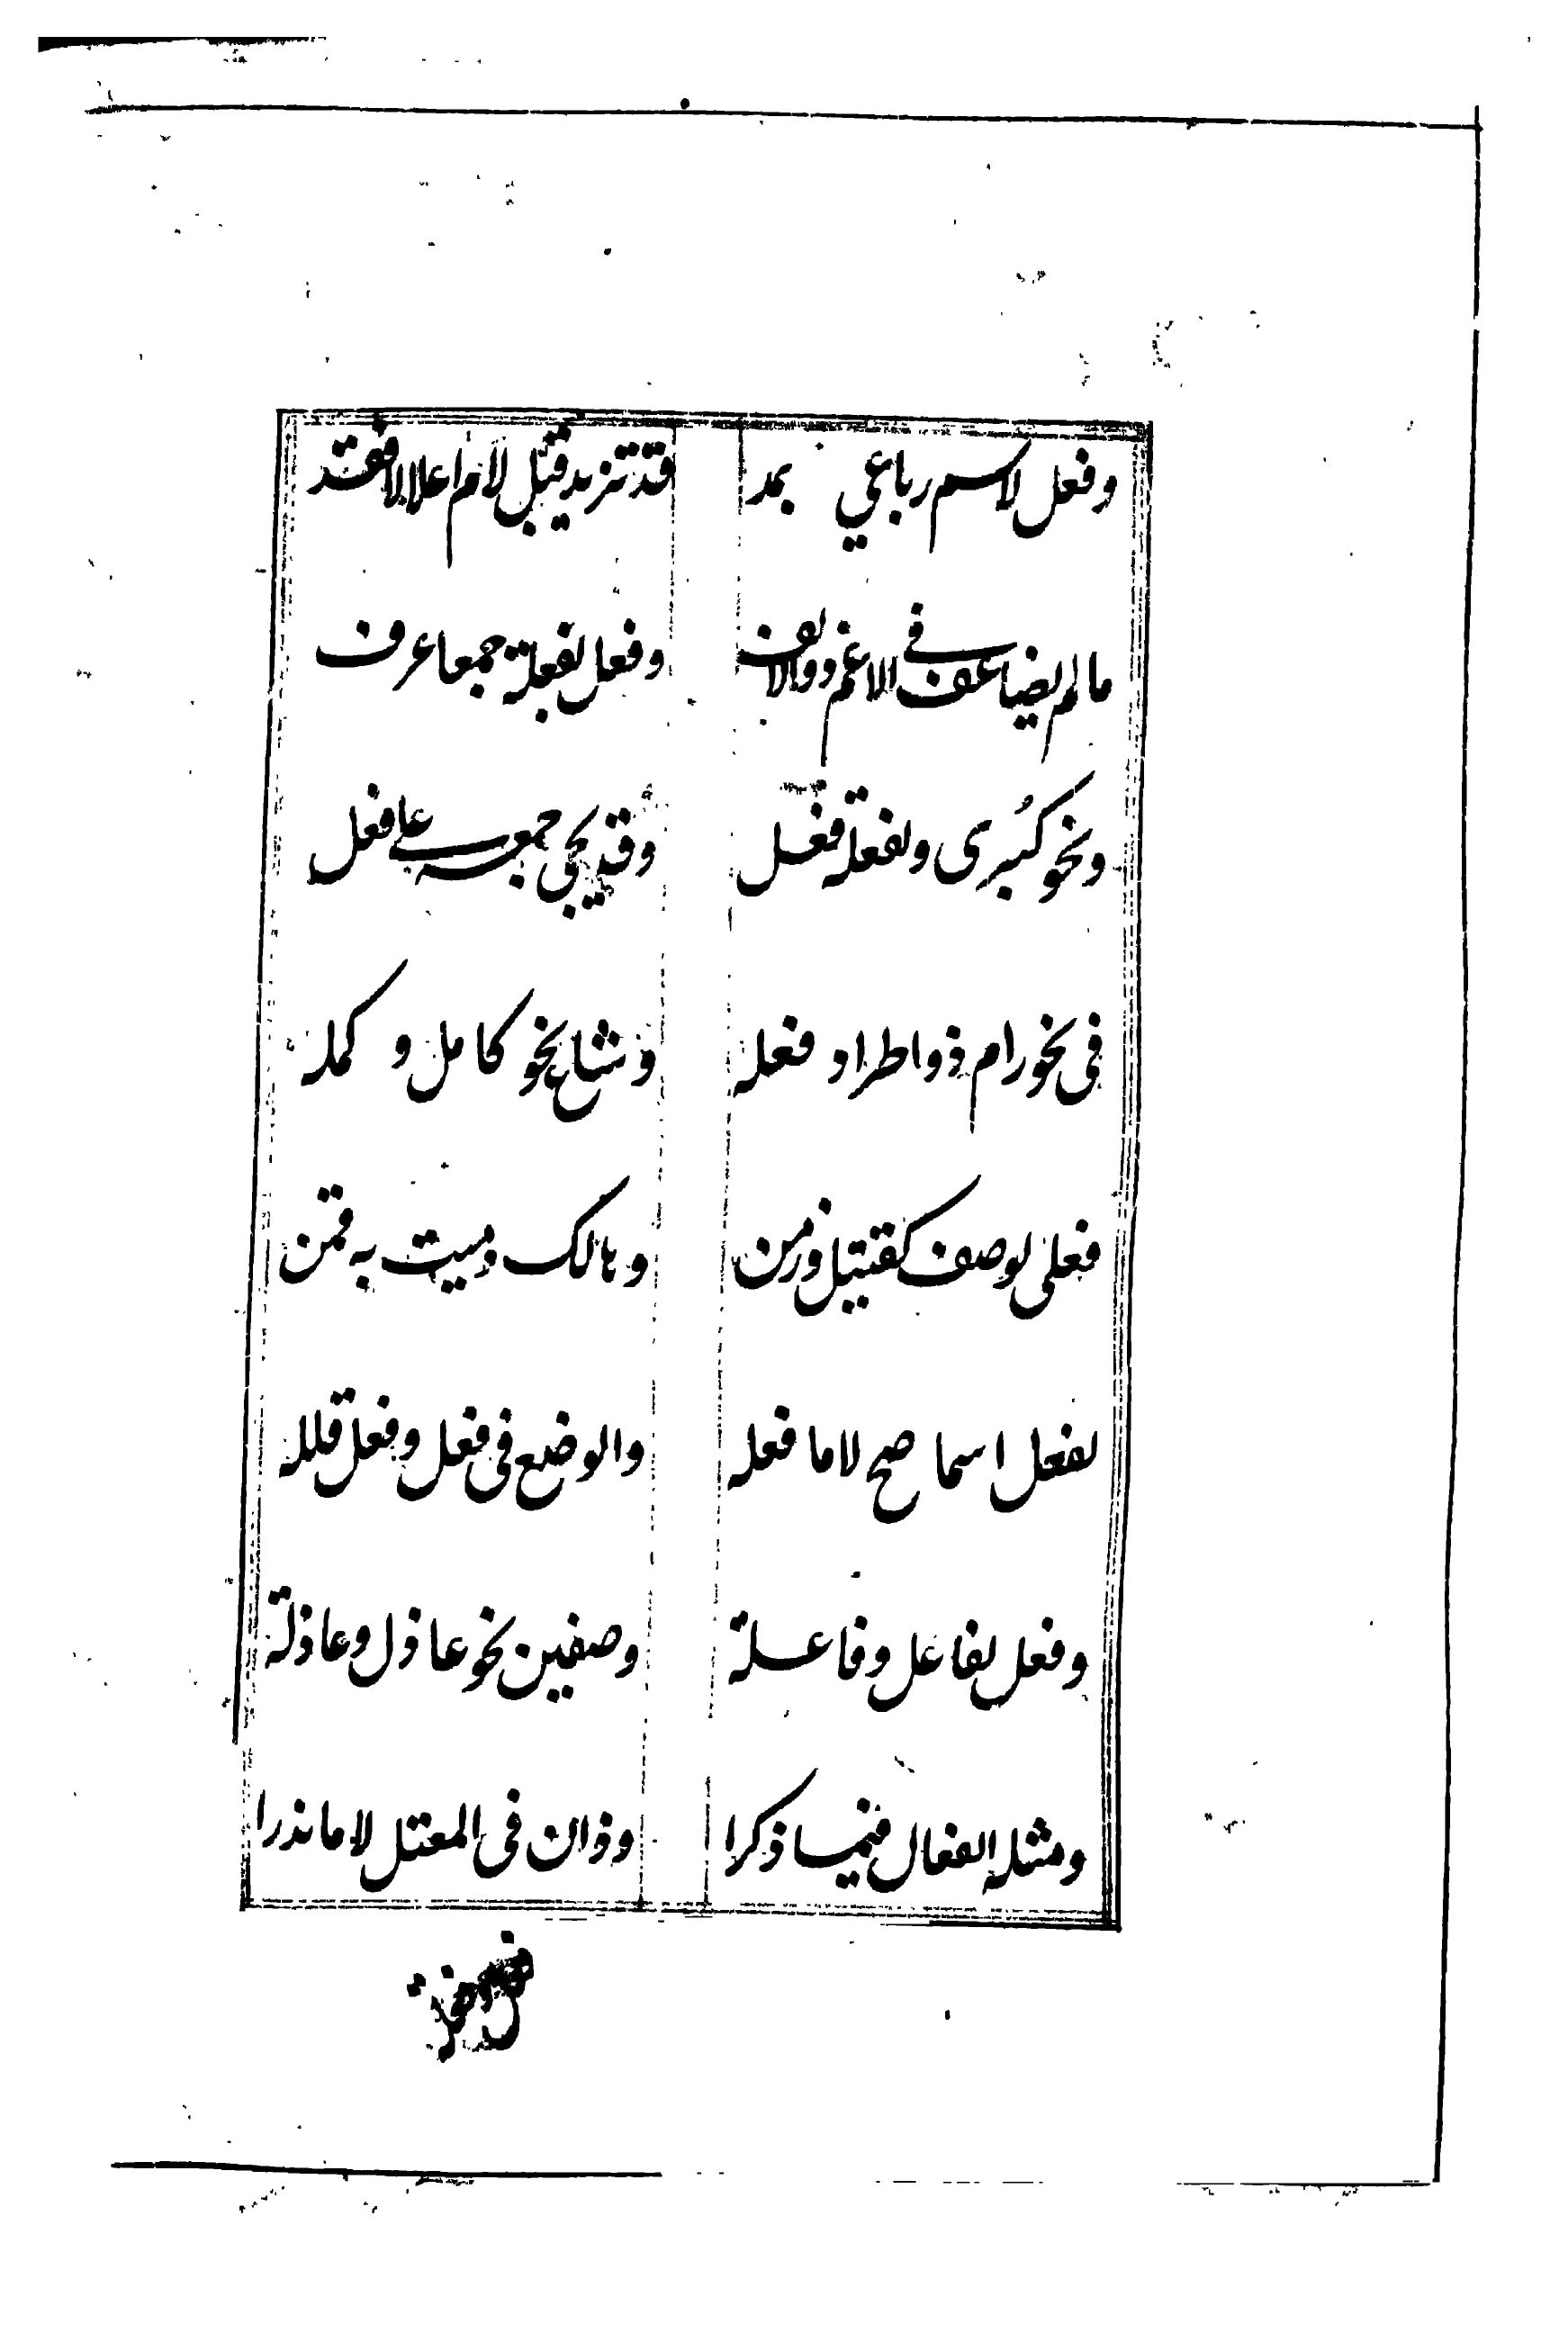 وفعل لاسم رباعي بمد قد تزيد قبل لام اعلالا فقد
ما لم يضاعف في الاعم ذو الالف وفعل لفعلة جمعا عرف
ونحو كُبرى ولفعلة فعل وقد يجي جمعه على فعل
في نحو رام ذو اطراد فعله وشاع نحو كامل و كمله
فعلى لوصف كقتيل وزمن وهالك وميت به قمن
لفعل اسما صح لاما فعله والوضع في فعل وفعل قلله
وفعل لفاعل وفاعلة وصفين نحو عاذل وعاذلة
ومثله الفعال فيما ذكرا وذان في المعتل لاما ندرا